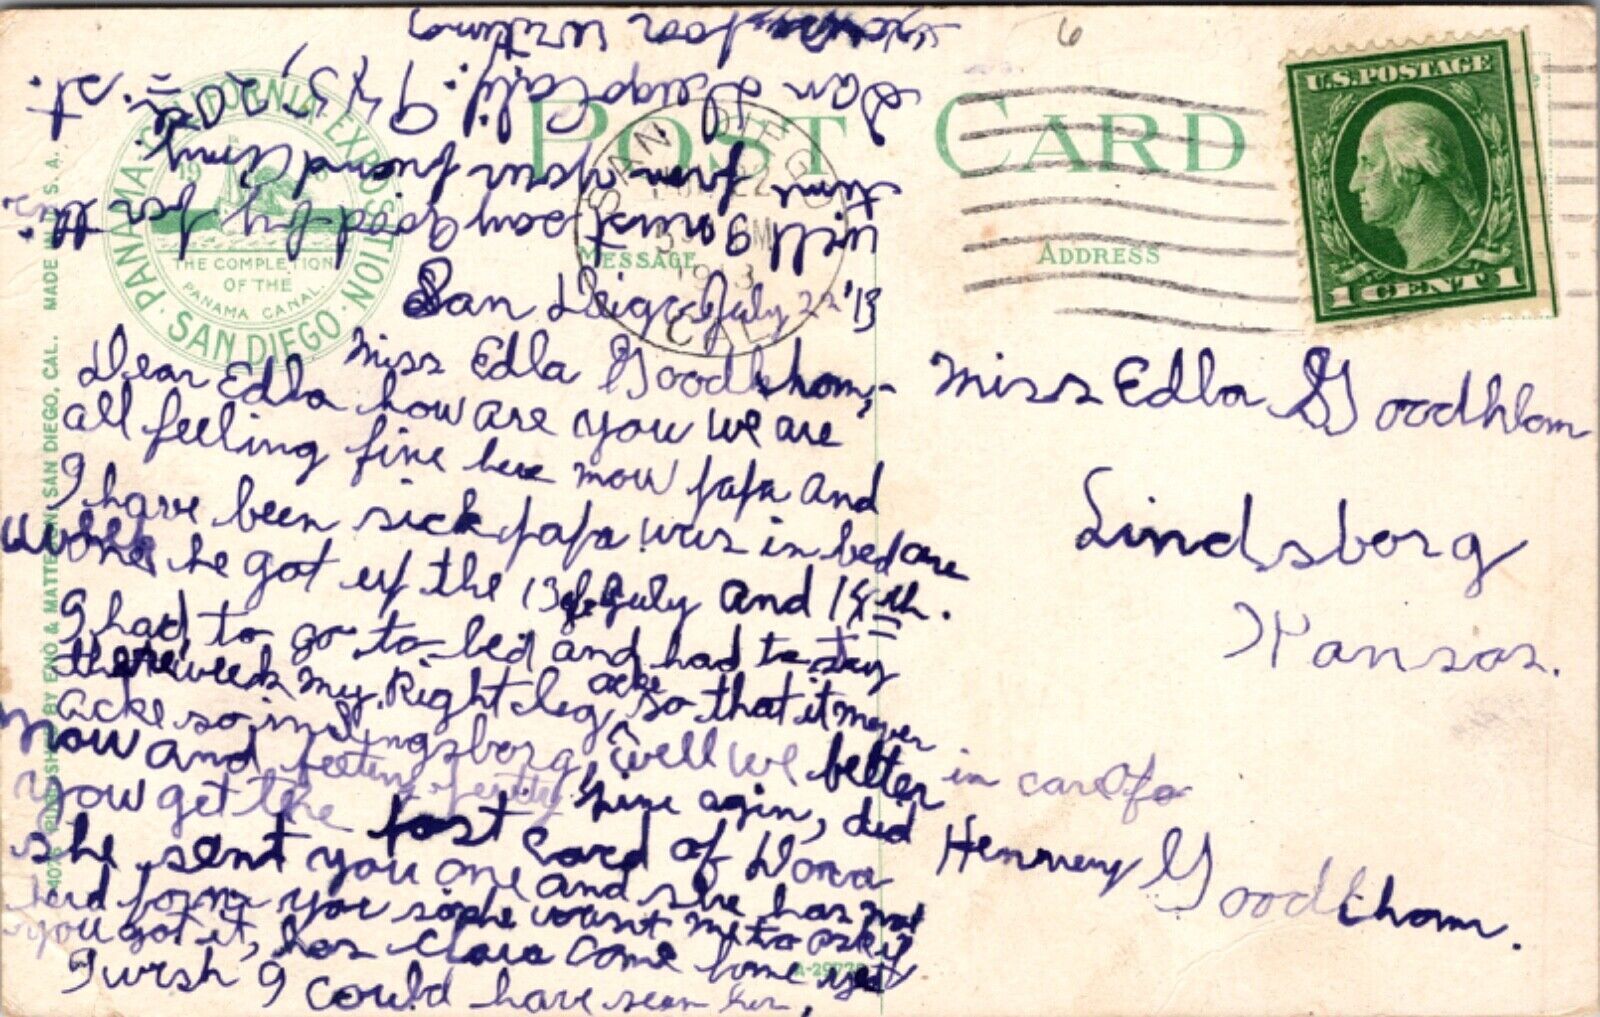 POST CARD
MESSAGE
ADDRESS
PANAMA-CALIFORNIA EXPOSITION
SAN DIEGO
THE COMPLETION
OF THE
PANAMA CANAL.
MADE IN U.S.A.
PUBLISHED BY ENO & MATTESON, SAN DIEGO, CAL.
SAN DIEGO
CAL
22
1913
U.S. POSTAGE
1 CENT 1
6
San Deigo July 22 '13
Miss Edla Goodhhom,-
Dear Edla how are you we are
all feeling fine here mow papa and
I have been sick papa was in bed are
week he got up the 13 of July and 14th.
I had to go to bed and had to stay
there week my Right leg acke so that it never
acke so in lingsborg, well we better
now and feeling fine agin, did
you get the card of Dora
she sent you one and she has not
herd form you so she want me to ask if
you got it, has Clara come home yet
I wish I could have seen her,
will now say good by for
time from your friend
San Diego Calif.
poor writing
Miss Edla Goodhhom
Lindsborg
Kansas.
in care of
Henrey Goodhhom.
A-29772